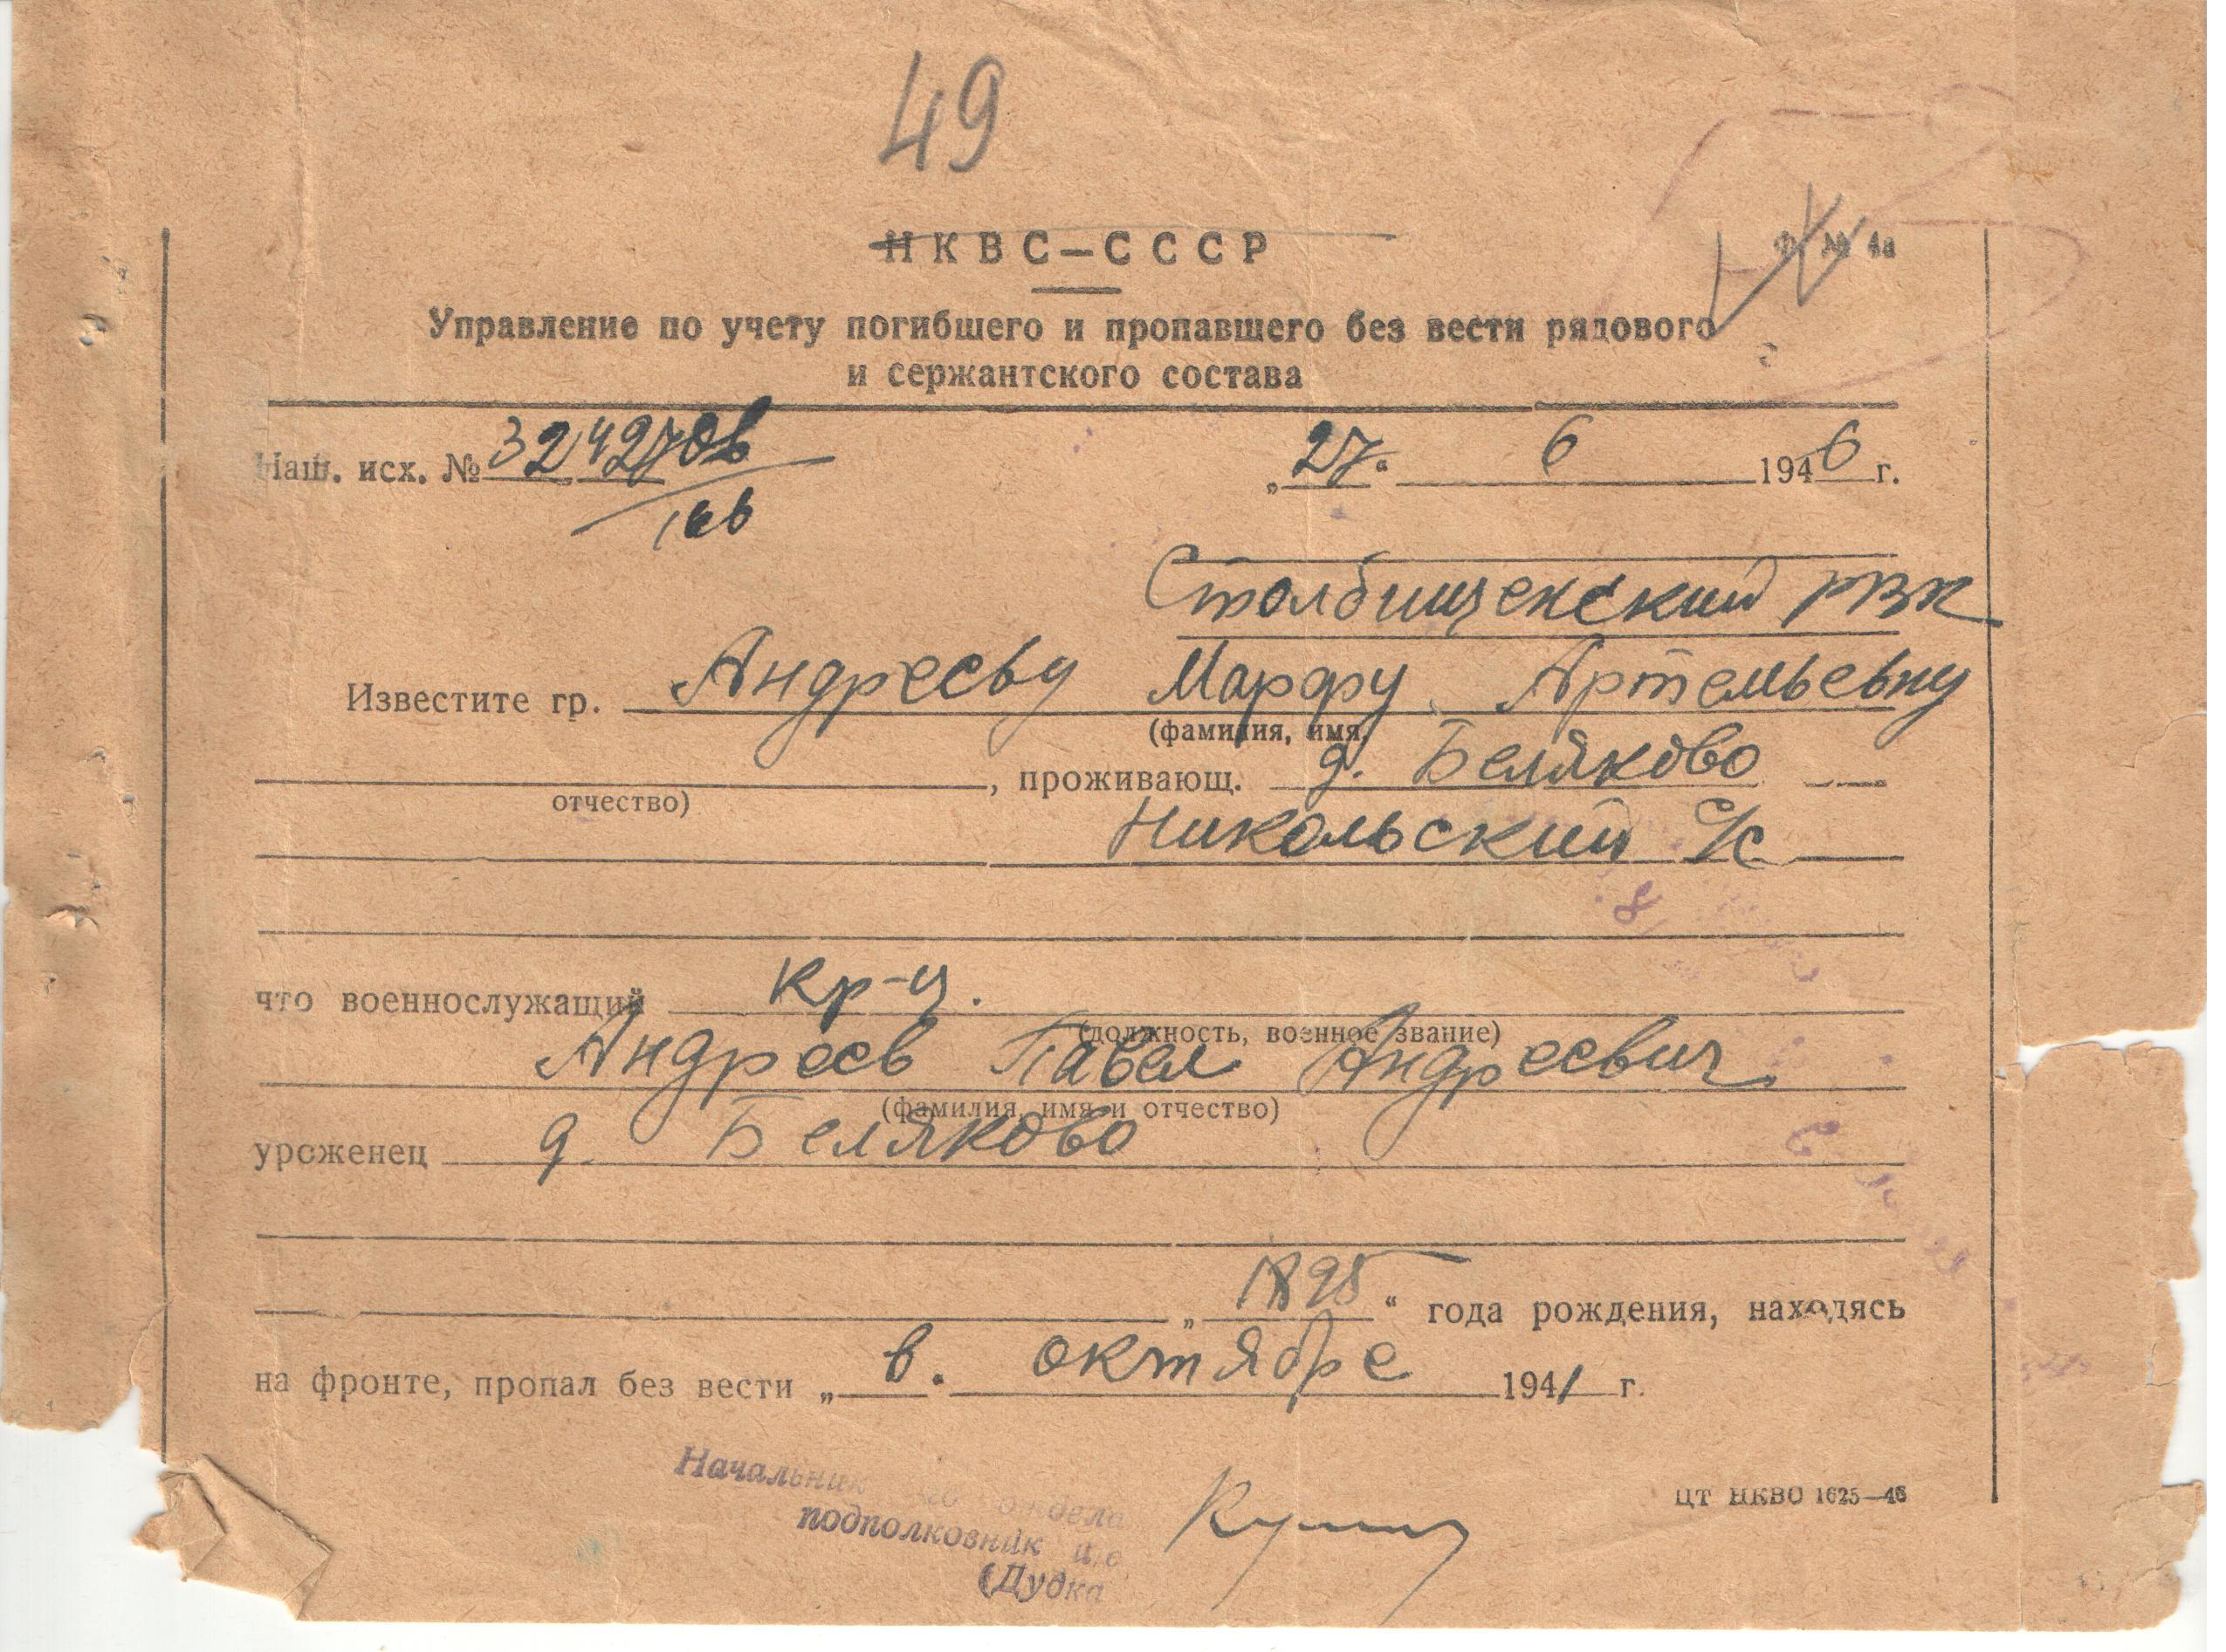 49
НКВС—СССР
Ф № 4а
Управление по учету погибшего и пропавшего без вести рядового
и сержантского состава
Наш. исх. №
„27“ 6 1946 г.
Столбищенский РВК
Известите гр. Андрееву Марфу Артемьевну
(фамилия, имя,
отчество)
, проживающ. д. Беляково
Никольский с/с
что военнослужащий кр-ц.
(должность, военное звание)
Андреев Павел Андреевич
(фамилия, имя и отчество)
уроженец д. Беляково
„1895“ года рождения, находясь
на фронте, пропал без вести „в“ октябре 1941 г.
Начальник отдела
подполковник
(Дудка
ЦТ НКВО 1625—45